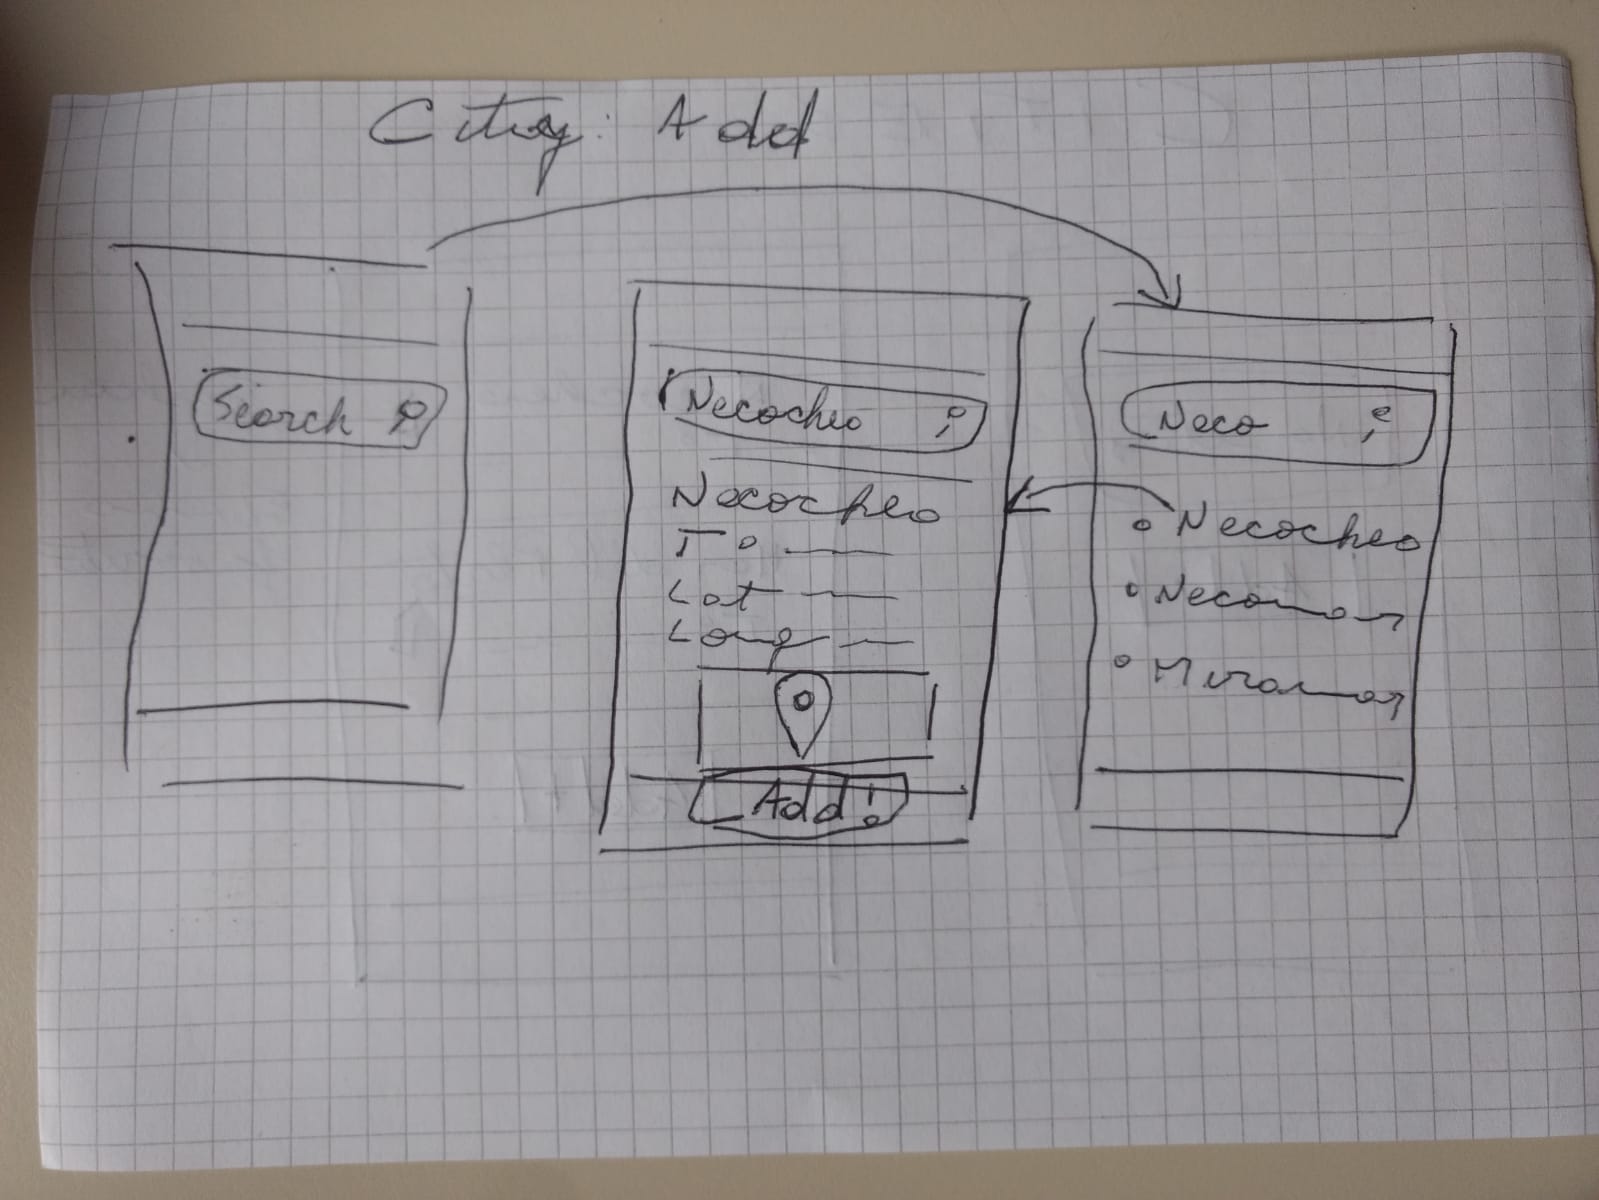 City: Add
Search
Necochea
Necochea
T° 
Lat
Long
Add!
Neco
Necochea
Necomar
Miramar